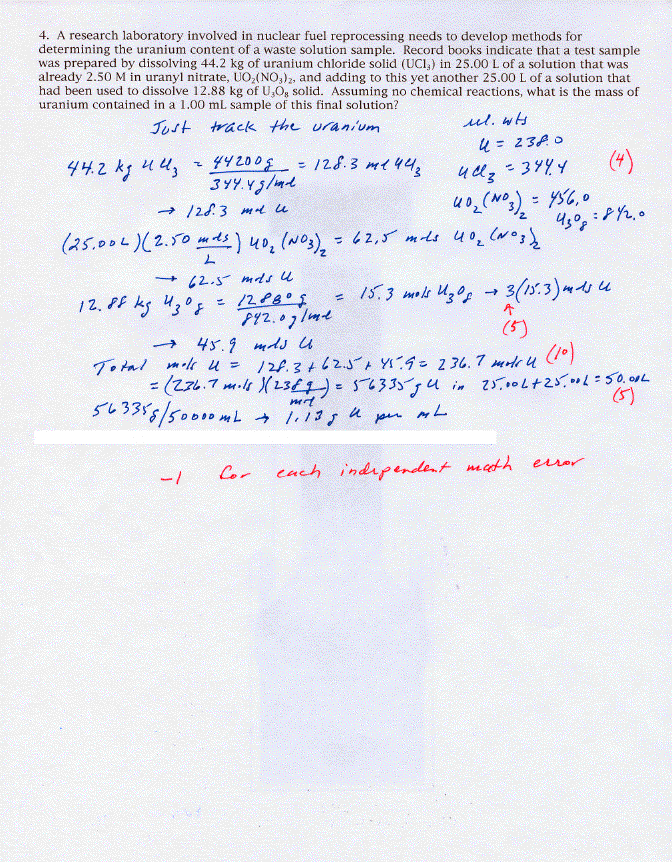 4. A research laboratory involved in nuclear fuel reprocessing needs to develop methods for
determining the uranium content of a waste solution sample. Record books indicate that a test sample
was prepared by dissolving 44.2 kg of uranium chloride solid (UCl₃) in 25.00 L of a solution that was
already 2.50 M in uranyl nitrate, UO₂(NO₃)₂, and adding to this yet another 25.00 L of a solution that
had been used to dissolve 12.88 kg of U₃O₈ solid. Assuming no chemical reactions, what is the mass of
uranium contained in a 1.00 mL sample of this final solution?
Just track the uranium
wts
U = 238.0
44.2 kg UCl₃ = 44200g / 344.4 g/mol = 128.3 mol UCl₃
UCl₃ = 344.4
(4)
→ 128.3 mol U
UO₂(NO₃)₂ = 456.0
U₃O₈ = 842.0
(25.00L)(2.50 mols/L) UO₂(NO₃)₂ = 62.5 mols UO₂(NO₃)₂
→ 62.5 mols U
12.88 kg U₃O₈ = 12880g / 842.0 g/mol = 15.3 mols U₃O₈ → 3(15.3) mols U
(5)
→ 45.9 mols U
Total mols U = 128.3 + 62.5 + 45.9 = 236.7 mols U (10)
= (236.7 mols)(238 g/mol) = 56335 g U in 25.00L + 25.00L = 50.00L
(5)
56335g/50000mL → 1.13 g U per mL
-1 for each independent math error